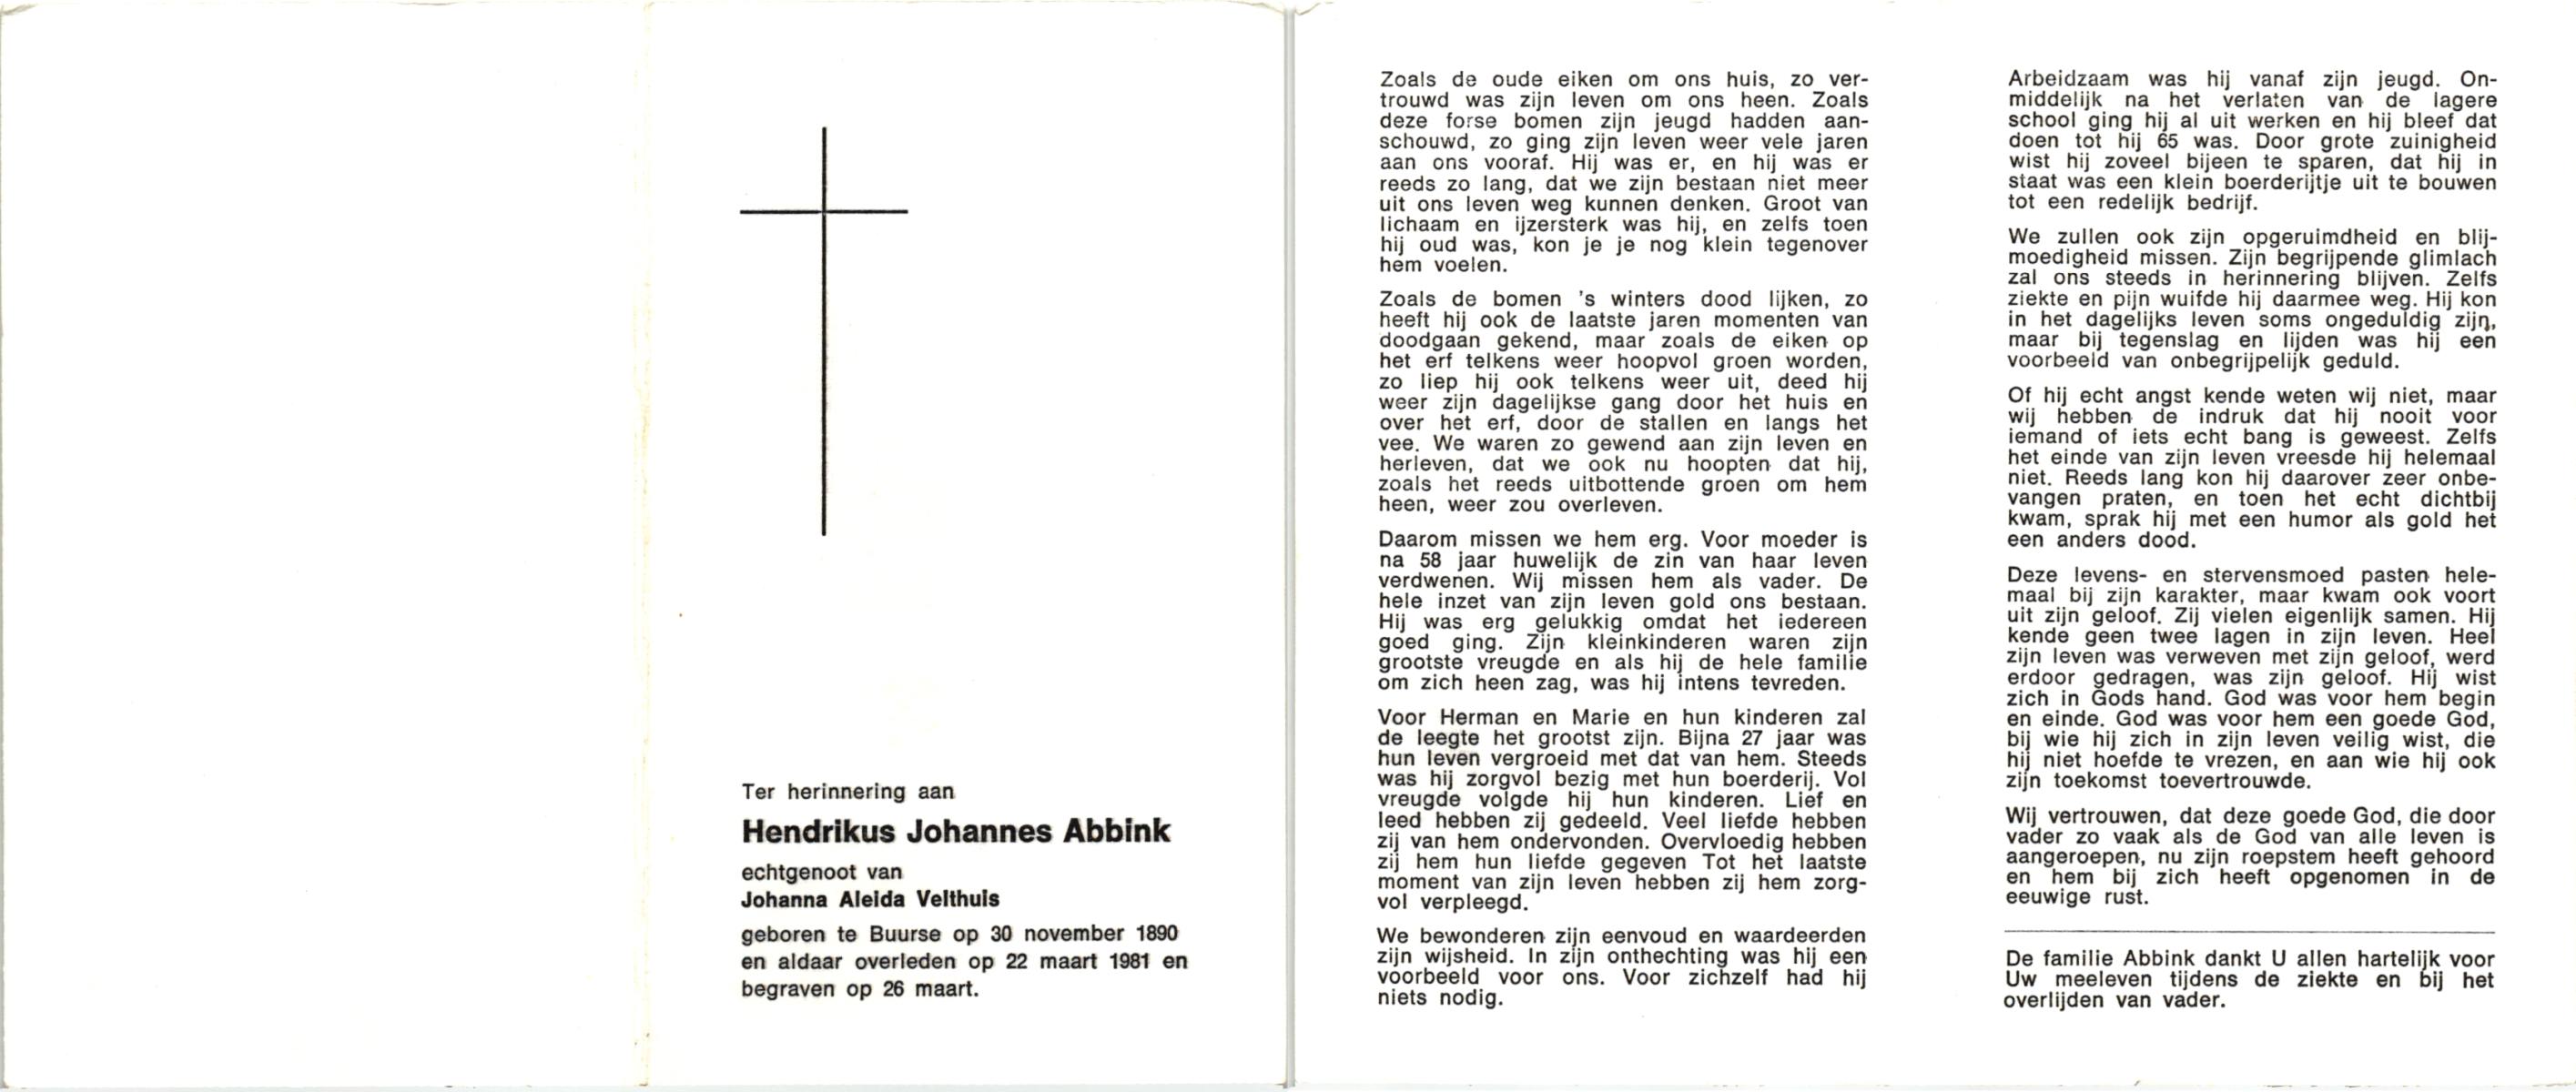 Ter herinnering aan
Hendrikus Johannes Abbink
echtgenoot van
Johanna Aleida Velthuis
geboren te Buurse op 30 november 1890
en aldaar overleden op 22 maart 1981 en
begraven op 26 maart.
Zoals de oude eiken om ons huis, zo ver-
trouwd was zijn leven om ons heen. Zoals
deze forse bomen zijn jeugd hadden aan-
schouwd, zo ging zijn leven weer vele jaren
aan ons vooraf. Hij was er, en hij was er
reeds zo lang, dat we zijn bestaan niet meer
uit ons leven weg kunnen denken. Groot van
lichaam en ijzersterk was hij, en zelfs toen
hij oud was, kon je je nog klein tegenover
hem voelen.
Zoals de bomen 's winters dood lijken, zo
heeft hij ook de laatste jaren momenten van
doodgaan gekend, maar zoals de eiken op
het erf telkens weer hoopvol groen worden,
zo liep hij ook telkens weer uit, deed hij
weer zijn dagelijkse gang door het huis en
over het erf, door de stallen en langs het
vee. We waren zo gewend aan zijn leven en
herleven, dat we ook nu hoopten dat hij,
zoals het reeds uitbottende groen om hem
heen, weer zou overleven.
Daarom missen we hem erg. Voor moeder is
na 58 jaar huwelijk de zin van haar leven
verdwenen. Wij missen hem als vader. De
hele inzet van zijn leven gold ons bestaan.
Hij was erg gelukkig omdat het iedereen
goed ging. Zijn kleinkinderen waren zijn
grootste vreugde en als hij de hele familie
om zich heen zag, was hij intens tevreden.
Voor Herman en Marie en hun kinderen zal
de leegte het grootst zijn. Bijna 27 jaar was
hun leven vergroeid met dat van hem. Steeds
was hij zorgvol bezig met hun boerderij. Vol
vreugde volgde hij hun kinderen. Lief en
leed hebben zij gedeeld. Veel liefde hebben
zij van hem ondervonden. Overvloedig hebben
zij hem hun liefde gegeven Tot het laatste
moment van zijn leven hebben zij hem zorg-
vol verpleegd.
We bewonderen zijn eenvoud en waardeerden
zijn wijsheid. In zijn onthechting was hij een
voorbeeld voor ons. Voor zichzelf had hij
niets nodig.
Arbeidzaam was hij vanaf zijn jeugd. On-
middelijk na het verlaten van de lagere
school ging hij al uit werken en hij bleef dat
doen tot hij 65 was. Door grote zuinigheid
wist hij zoveel bijeen te sparen, dat hij in
staat was een klein boerderijtje uit te bouwen
tot een redelijk bedrijf.
We zullen ook zijn opgeruimdheid en blij-
moedigheid missen. Zijn begrijpende glimlach
zal ons steeds in herinnering blijven. Zelfs
ziekte en pijn wuifde hij daarmee weg. Hij kon
in het dagelijks leven soms ongeduldig zijn,
maar bij tegenslag en lijden was hij een
voorbeeld van onbegrijpelijk geduld.
Of hij echt angst kende weten wij niet, maar
wij hebben de indruk dat hij nooit voor
iemand of iets echt bang is geweest. Zelfs
het einde van zijn leven vreesde hij helemaal
niet. Reeds lang kon hij daarover zeer onbe-
vangen praten, en toen het echt dichtbij
kwam, sprak hij met een humor als gold het
een anders dood.
Deze levens- en stervensmoed pasten hele-
maal bij zijn karakter, maar kwam ook voort
uit zijn geloof. Zij vielen eigenlijk samen. Hij
kende geen twee lagen in zijn leven. Heel
zijn leven was verweven met zijn geloof, werd
erdoor gedragen, was zijn geloof. Hij wist
zich in Gods hand. God was voor hem begin
en einde. God was voor hem een goede God,
bij wie hij zich in zijn leven veilig wist, die
hij niet hoefde te vrezen, en aan wie hij ook
zijn toekomst toevertrouwde.
Wij vertrouwen, dat deze goede God, die door
vader zo vaak als de God van alle leven is
aangeroepen, nu zijn roepstem heeft gehoord
en hem bij zich heeft opgenomen in de
eeuwige rust.
De familie Abbink dankt U allen hartelijk voor
Uw meeleven tijdens de ziekte en bij het
overlijden van vader.